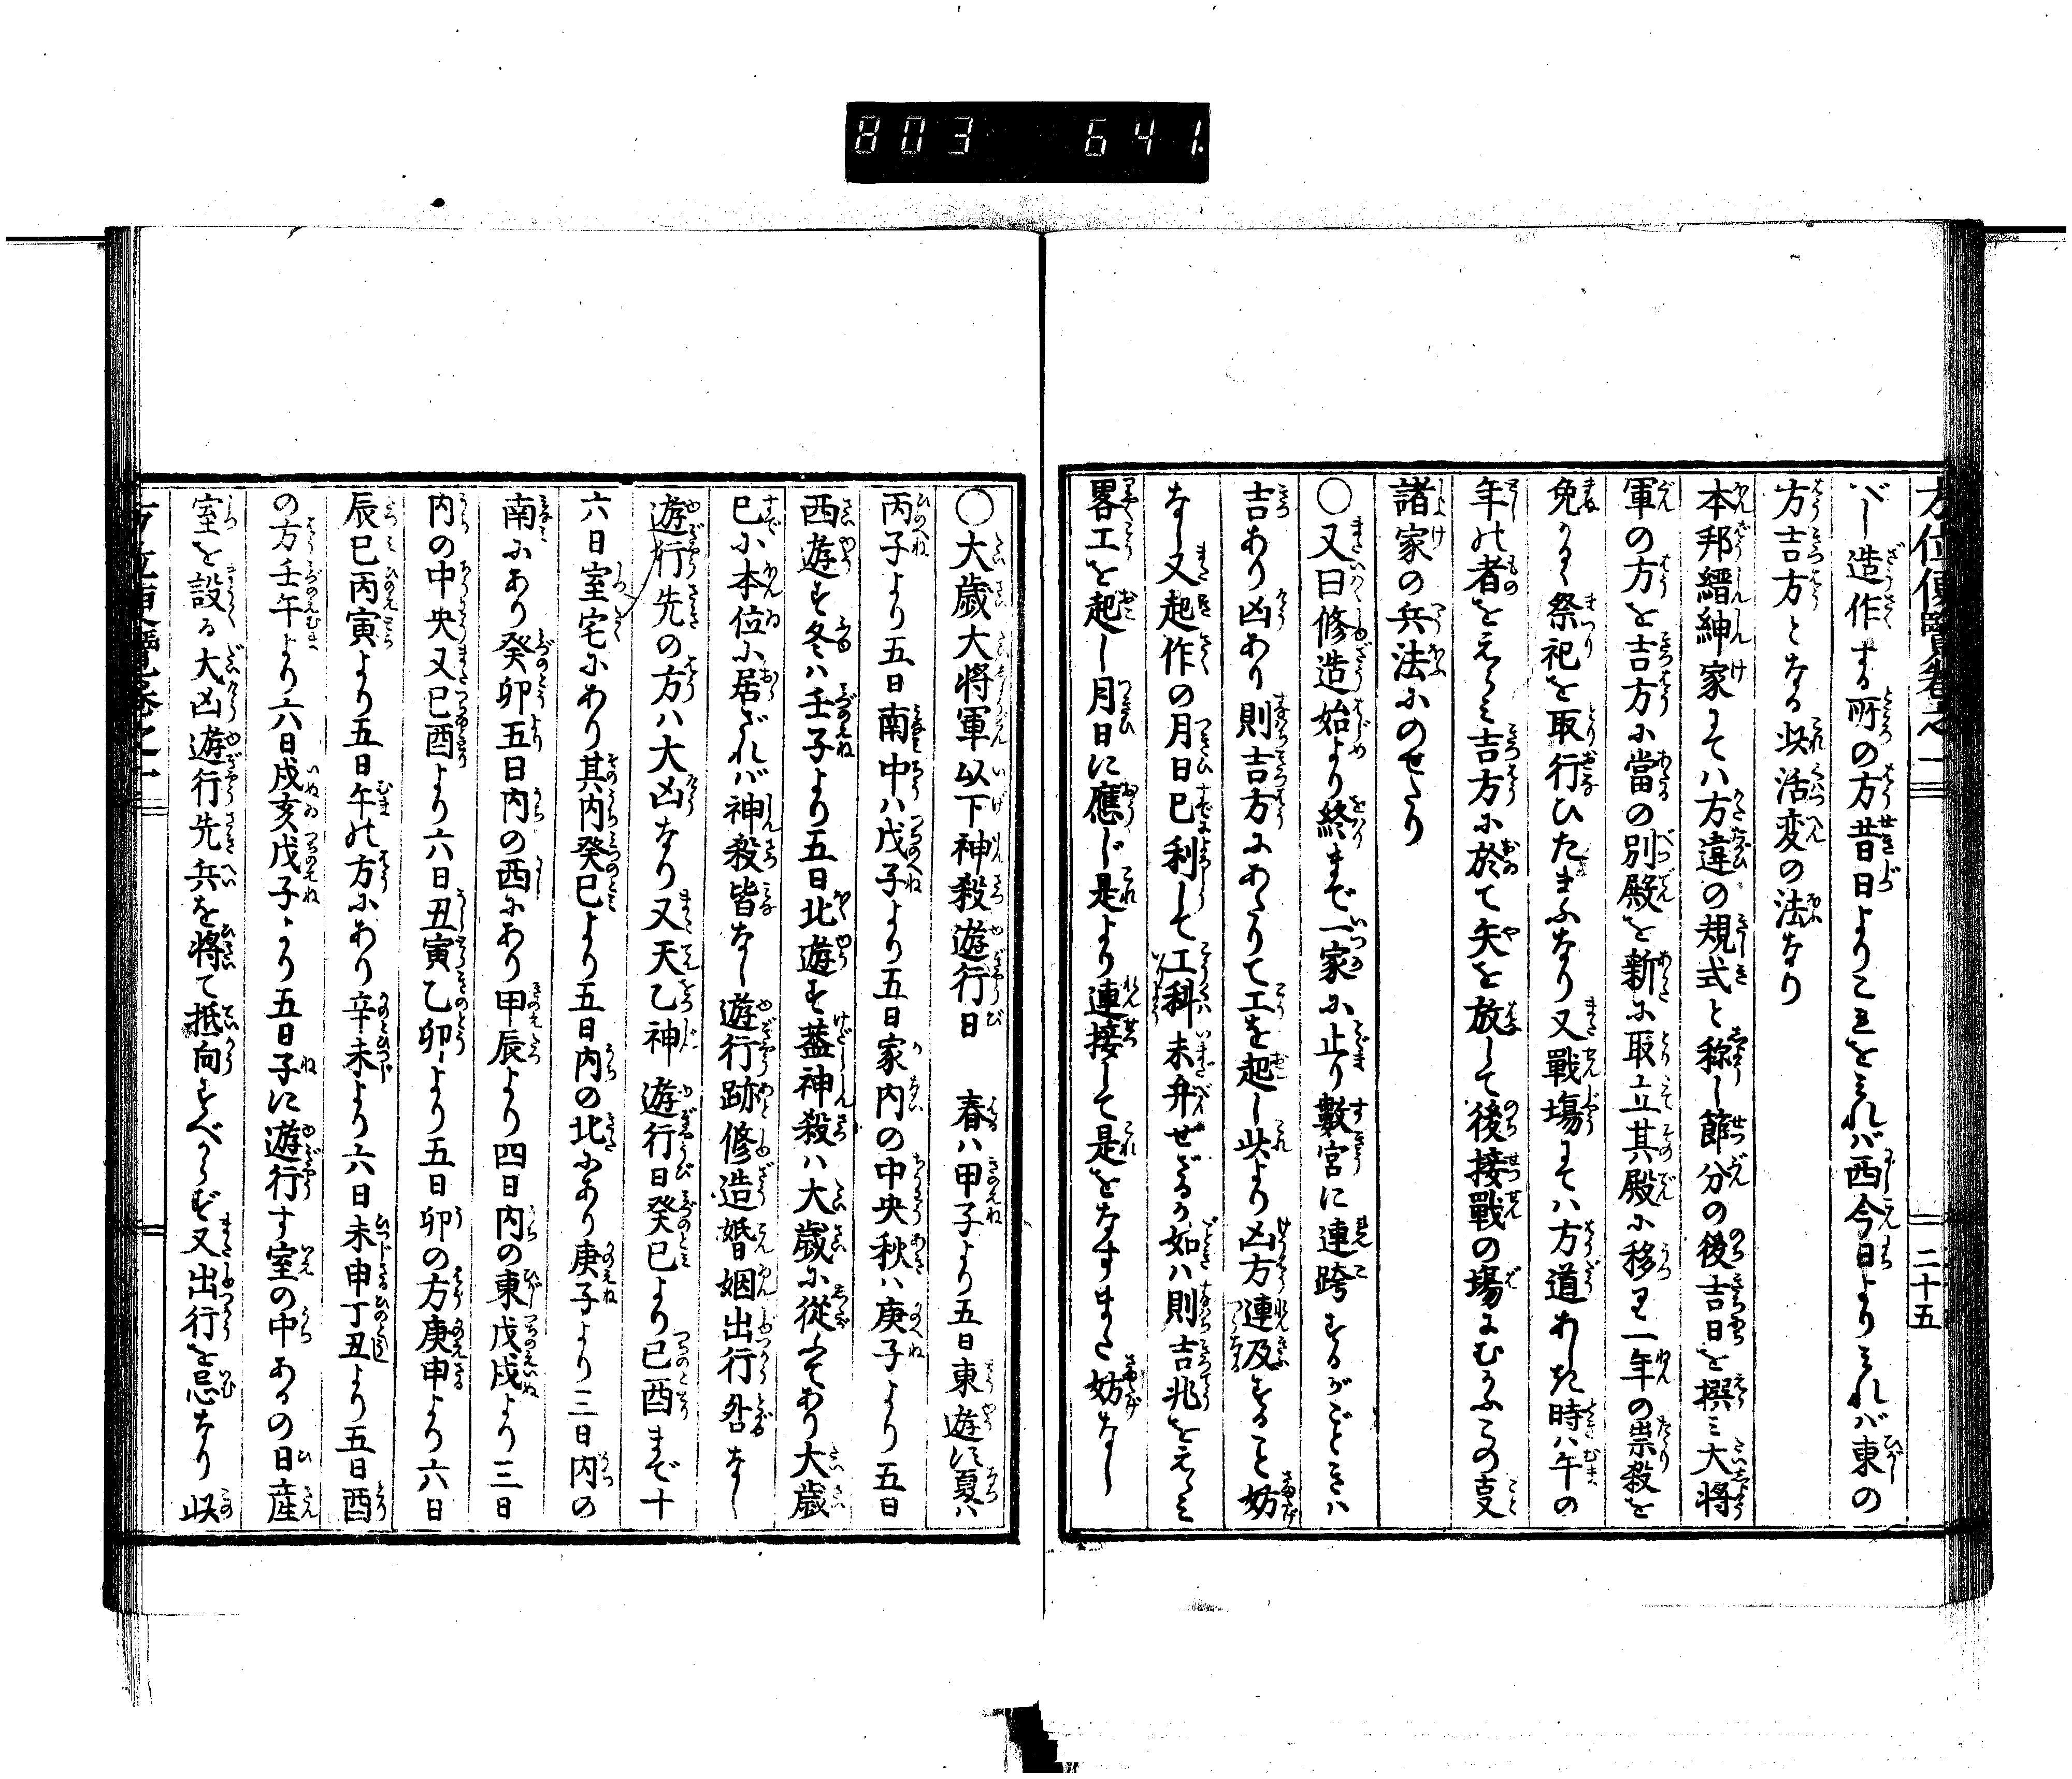 803 641.
方位便覧巻之一 二十五
バし造作する所の方昔日よりこゝをみれバ西今日よりみれバ東の
方吉方となる此活変の法なり
本邦縉紳家にてハ方違の規式と称し節分の後吉日を撰ミ大将
軍の方を吉方に當の別殿を新に取立其殿に移り一年の祟殺を
免るゝ祭祀を取行ひたまふなり又戰場にてハ方道あしき時ハ午の
年の者をえらミ吉方に於て矢を放して後接戰の場にむかふこの支
諸家の兵法にのせたり
○又曰修造始より終まで一家に止り數宮に連跨するがごときハ
吉あり凶あり則吉方にあたりて工を起し此より凶方連及すること妨
なし又起作の月日已利して工科未弁せざるの如ハ則吉兆をえらミ
畧工を起し月日に應じ是より連接して是をなすまた妨なし
○大歳大将軍以下神殺遊行日 春ハ甲子より五日東遊に夏ハ
丙子より五日南中ハ戊子より五日家内の中央秋ハ庚子より五日
西遊す冬ハ壬子より五日北遊す蓋神殺ハ大歳に從ふてあり大歳
已に本位に居ざれバ神殺皆なし遊行跡修造婚姻出行咎なし
遊行先の方ハ大凶なり又天乙神遊行日癸巳より己酉まで十
六日室宅にあり其内癸巳より五日内の北にあり庚子より三日内の
南にあり癸卯五日内の西にあり甲辰より四日内の東戊戌より三日
内の中央又己酉より六日丑寅乙卯より五日卯の方庚申より六日
辰巳丙寅より五日午の方にあり辛未より六日未申丁丑より五日酉
の方壬午より六日戌亥戊子より五日子に遊行す室の中あるの日産
室を設る大凶遊行先兵を将て抵向すべからず又出行を忌なり 此